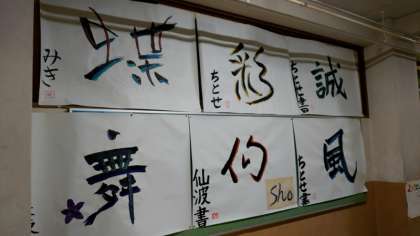 蝶
みき
彩
ちとせ
誠
ちとせ書
舞
仙波書
Sho
風
ちとせ書